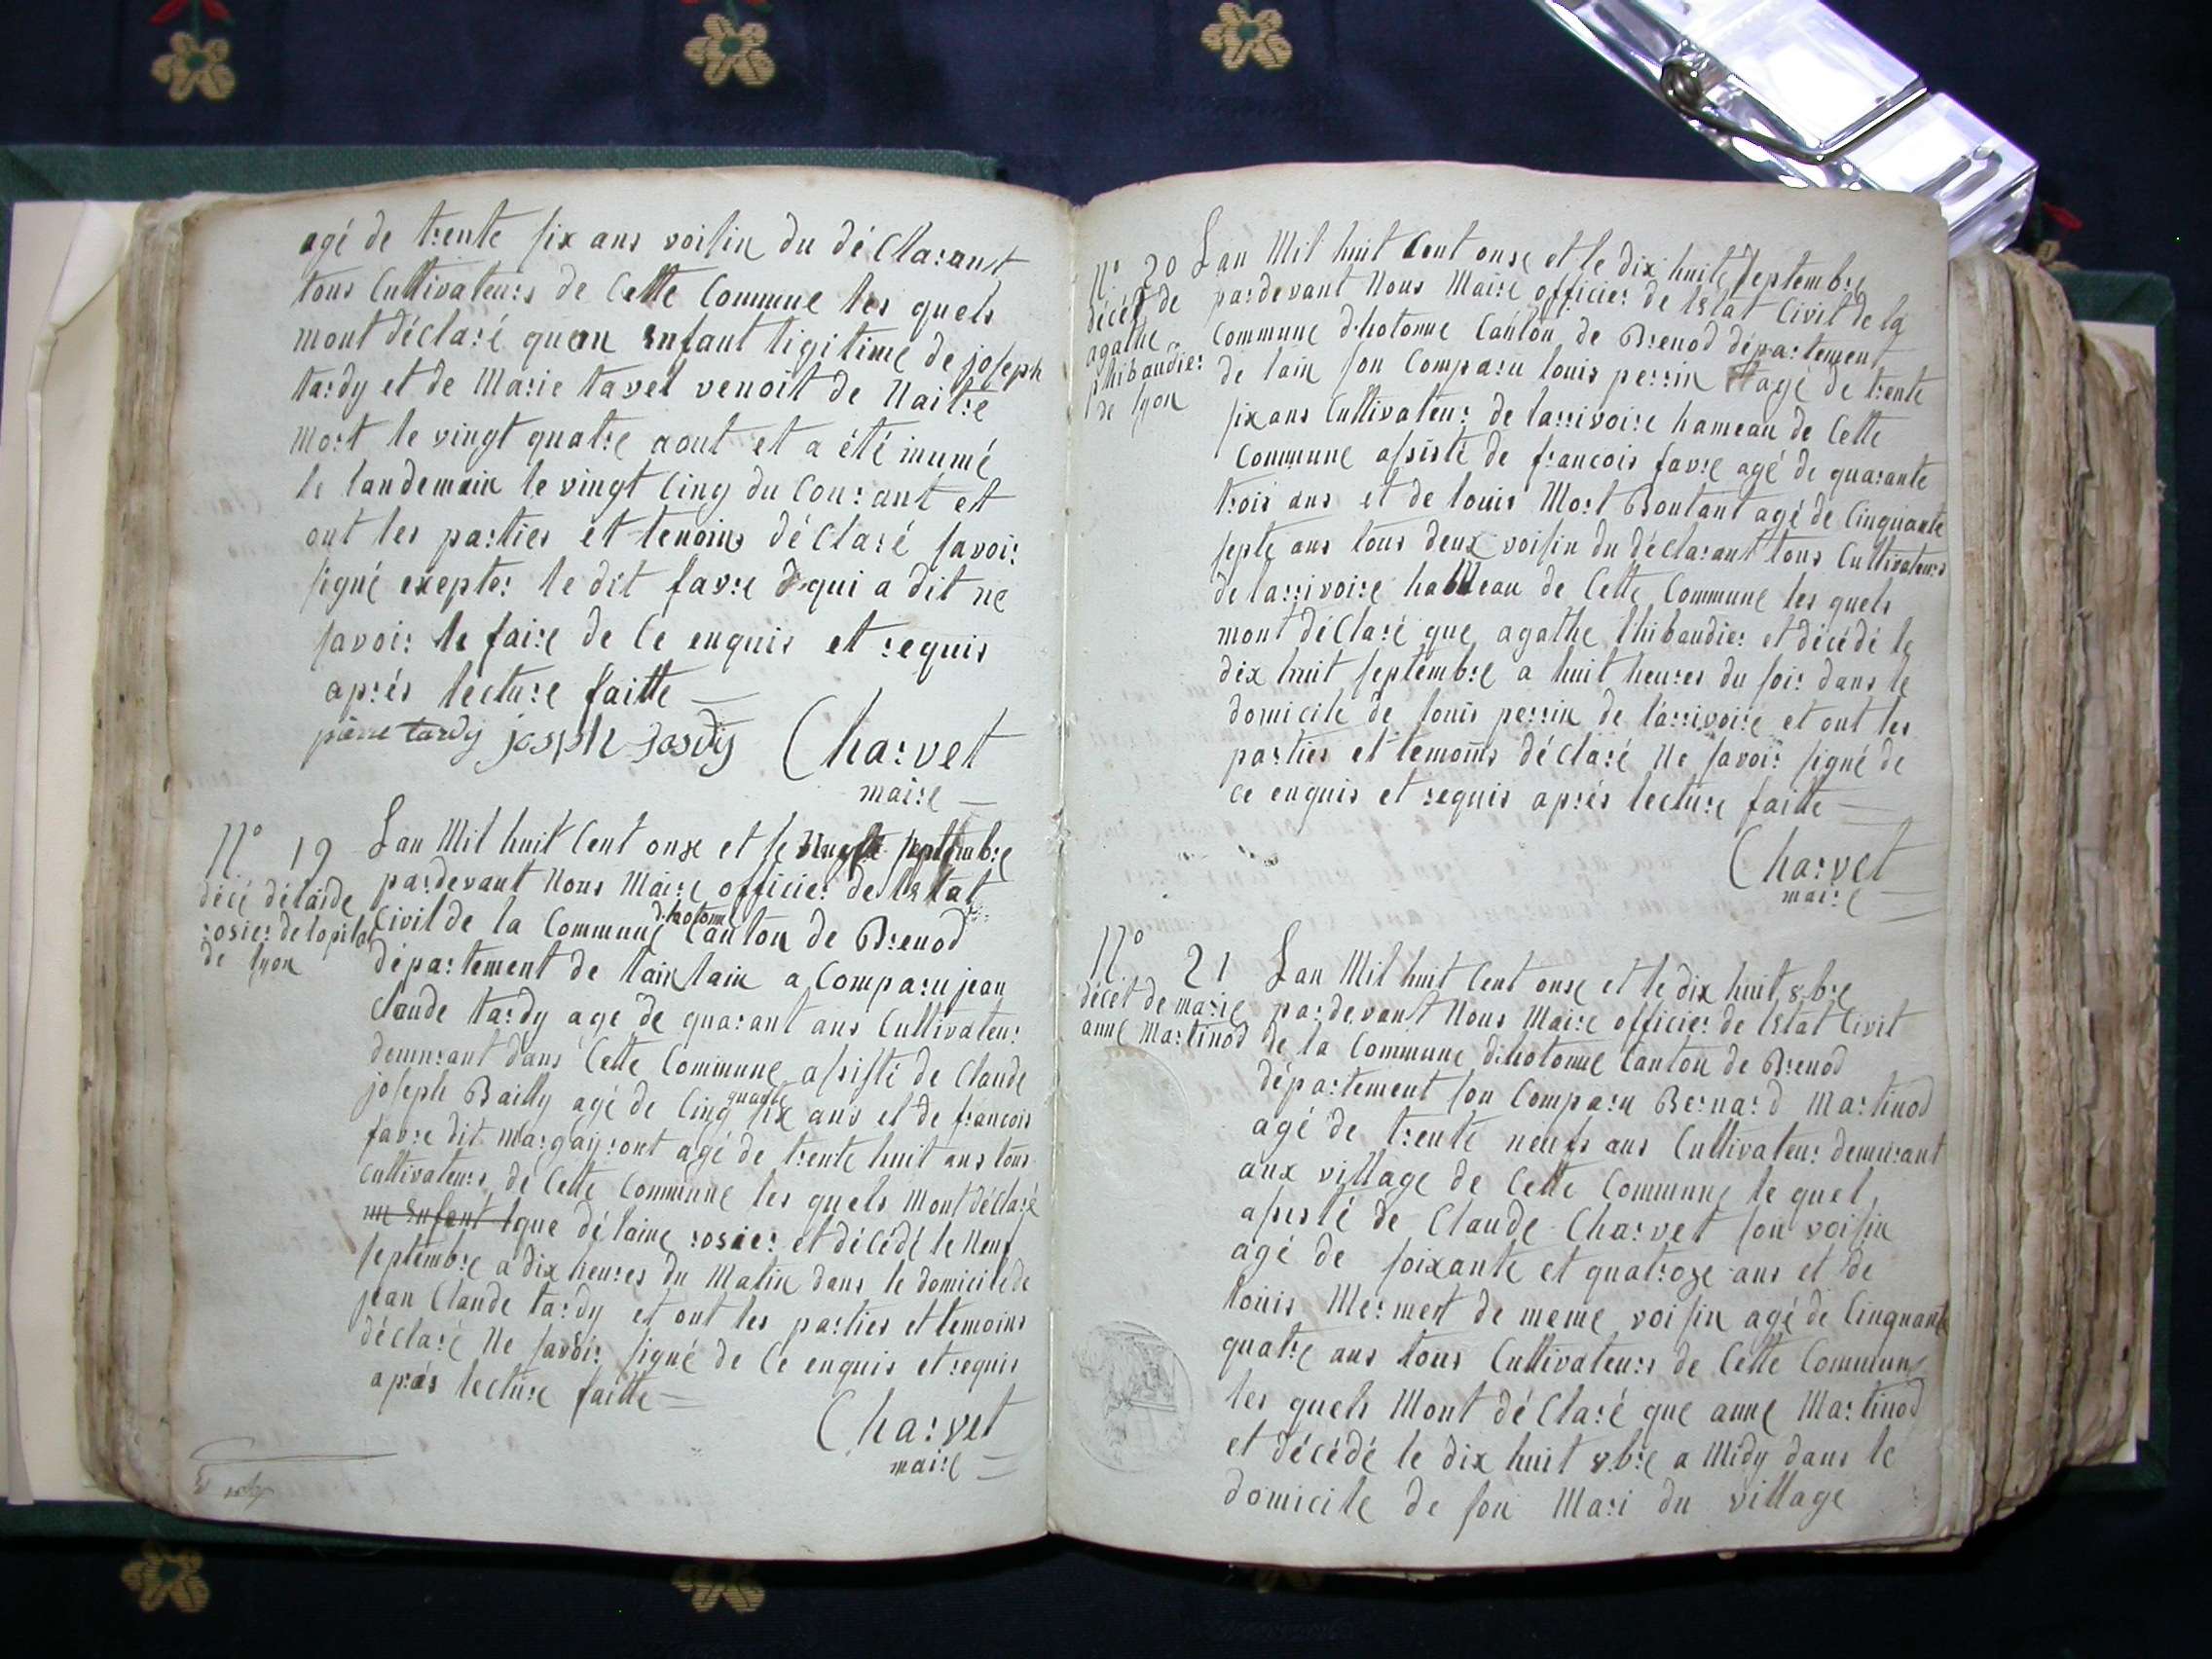 agé de trente six ans voisin du déClarant
tous Cultivateurs de Cette Commune les quels
mont déClaré quun Enfant ligitime de joseph
tardy et de Marie tavel venoit de Naitre
Mort le vingt quatre aout et a été inumé
le landemain le vingt Cinq du Courant et
ont les parties et temoins déClaré savoir
signé exepter le dit favre qui a dit ne
savoir le faire de Ce enquis et requis
aprés lecture faitte
pierre tardy joseph tardy Charvet
maire
N° 19
décé délaide
rosier de lopital
de lyon
Lan Mil huit Cent onze et le septembre
pardevant Nous Maire officier de lEtat
Civil de la Commune d'hotonne Canton de Brenod
département de lain lain a Comparu jean
Claude tardy agé de quarant ans Cultivateur
demurant dans Cette Commune assisté de Claude
joseph Bailly agé de Cinq quante six ans et de francois
favre dit Margayront agé de trente huit ans tous
Cultivateurs de Cette Commune les quels Mont déClaré
un Enfant que délaine rosier et décédé le Neuf
septembre a dix heures du Matin dans le domicile de
jean Claude tardy et ont les parties et temoins
déclaré Ne savoir signé de Ce enquis et requis
aprés lecture faitte
Charvet
maire
N° 20
décét de
agathe
thibaudier
de lyon
Lan Mil huit Cent onze et le dix huite septembre
pardevant Nous Maire officier de lEtat Civil de la
Commune d'hotonne Canton de Brenod département
de lain son Comparu louis perrin agé de trente
six ans Cultivateur de larrivoire hameau de Cette
Commune assisté de francois favre agé de quarante
trois ans et de louis Mort Boutant agé de Cinquante
septe ans tous deux voisin du déclarant tous Cultivateurs
de larrivoire hameau de Cette Commune les quels
mont déClaré que agathe thibaudier et décédé le
dix huit septembre a huit heures du soir dans le
domicile de louis perrin de larrivoire et ont les
parties et temoins déClaré Ne savoir signé de
ce enquis et requis aprés lecture faitte
Charvet
maire
N° 21
décét de marie
anne Martinod
Lan Mil huit Cent onze et le dix huit 8.bre
pardevant Nous Maire officier de lEtat Civil
de la Commune d'hotonne Canton de Brenod
département son Comparu Bernard Martinod
agé de trente neufs ans Cultivateur demurant
aux village de Cette Commune le quel
asisté de Claude Charvet son voisin
agé de soixante et quatroze ans et de
louis Mermert de meme voisin agé de Cinquante
quatre ans tous Cultivateurs de Cette Commune
les quels Mont déClaré que anne Martinod
et décédé le dix huit 8.bre a Midy dans le
domicile de son Mari du village